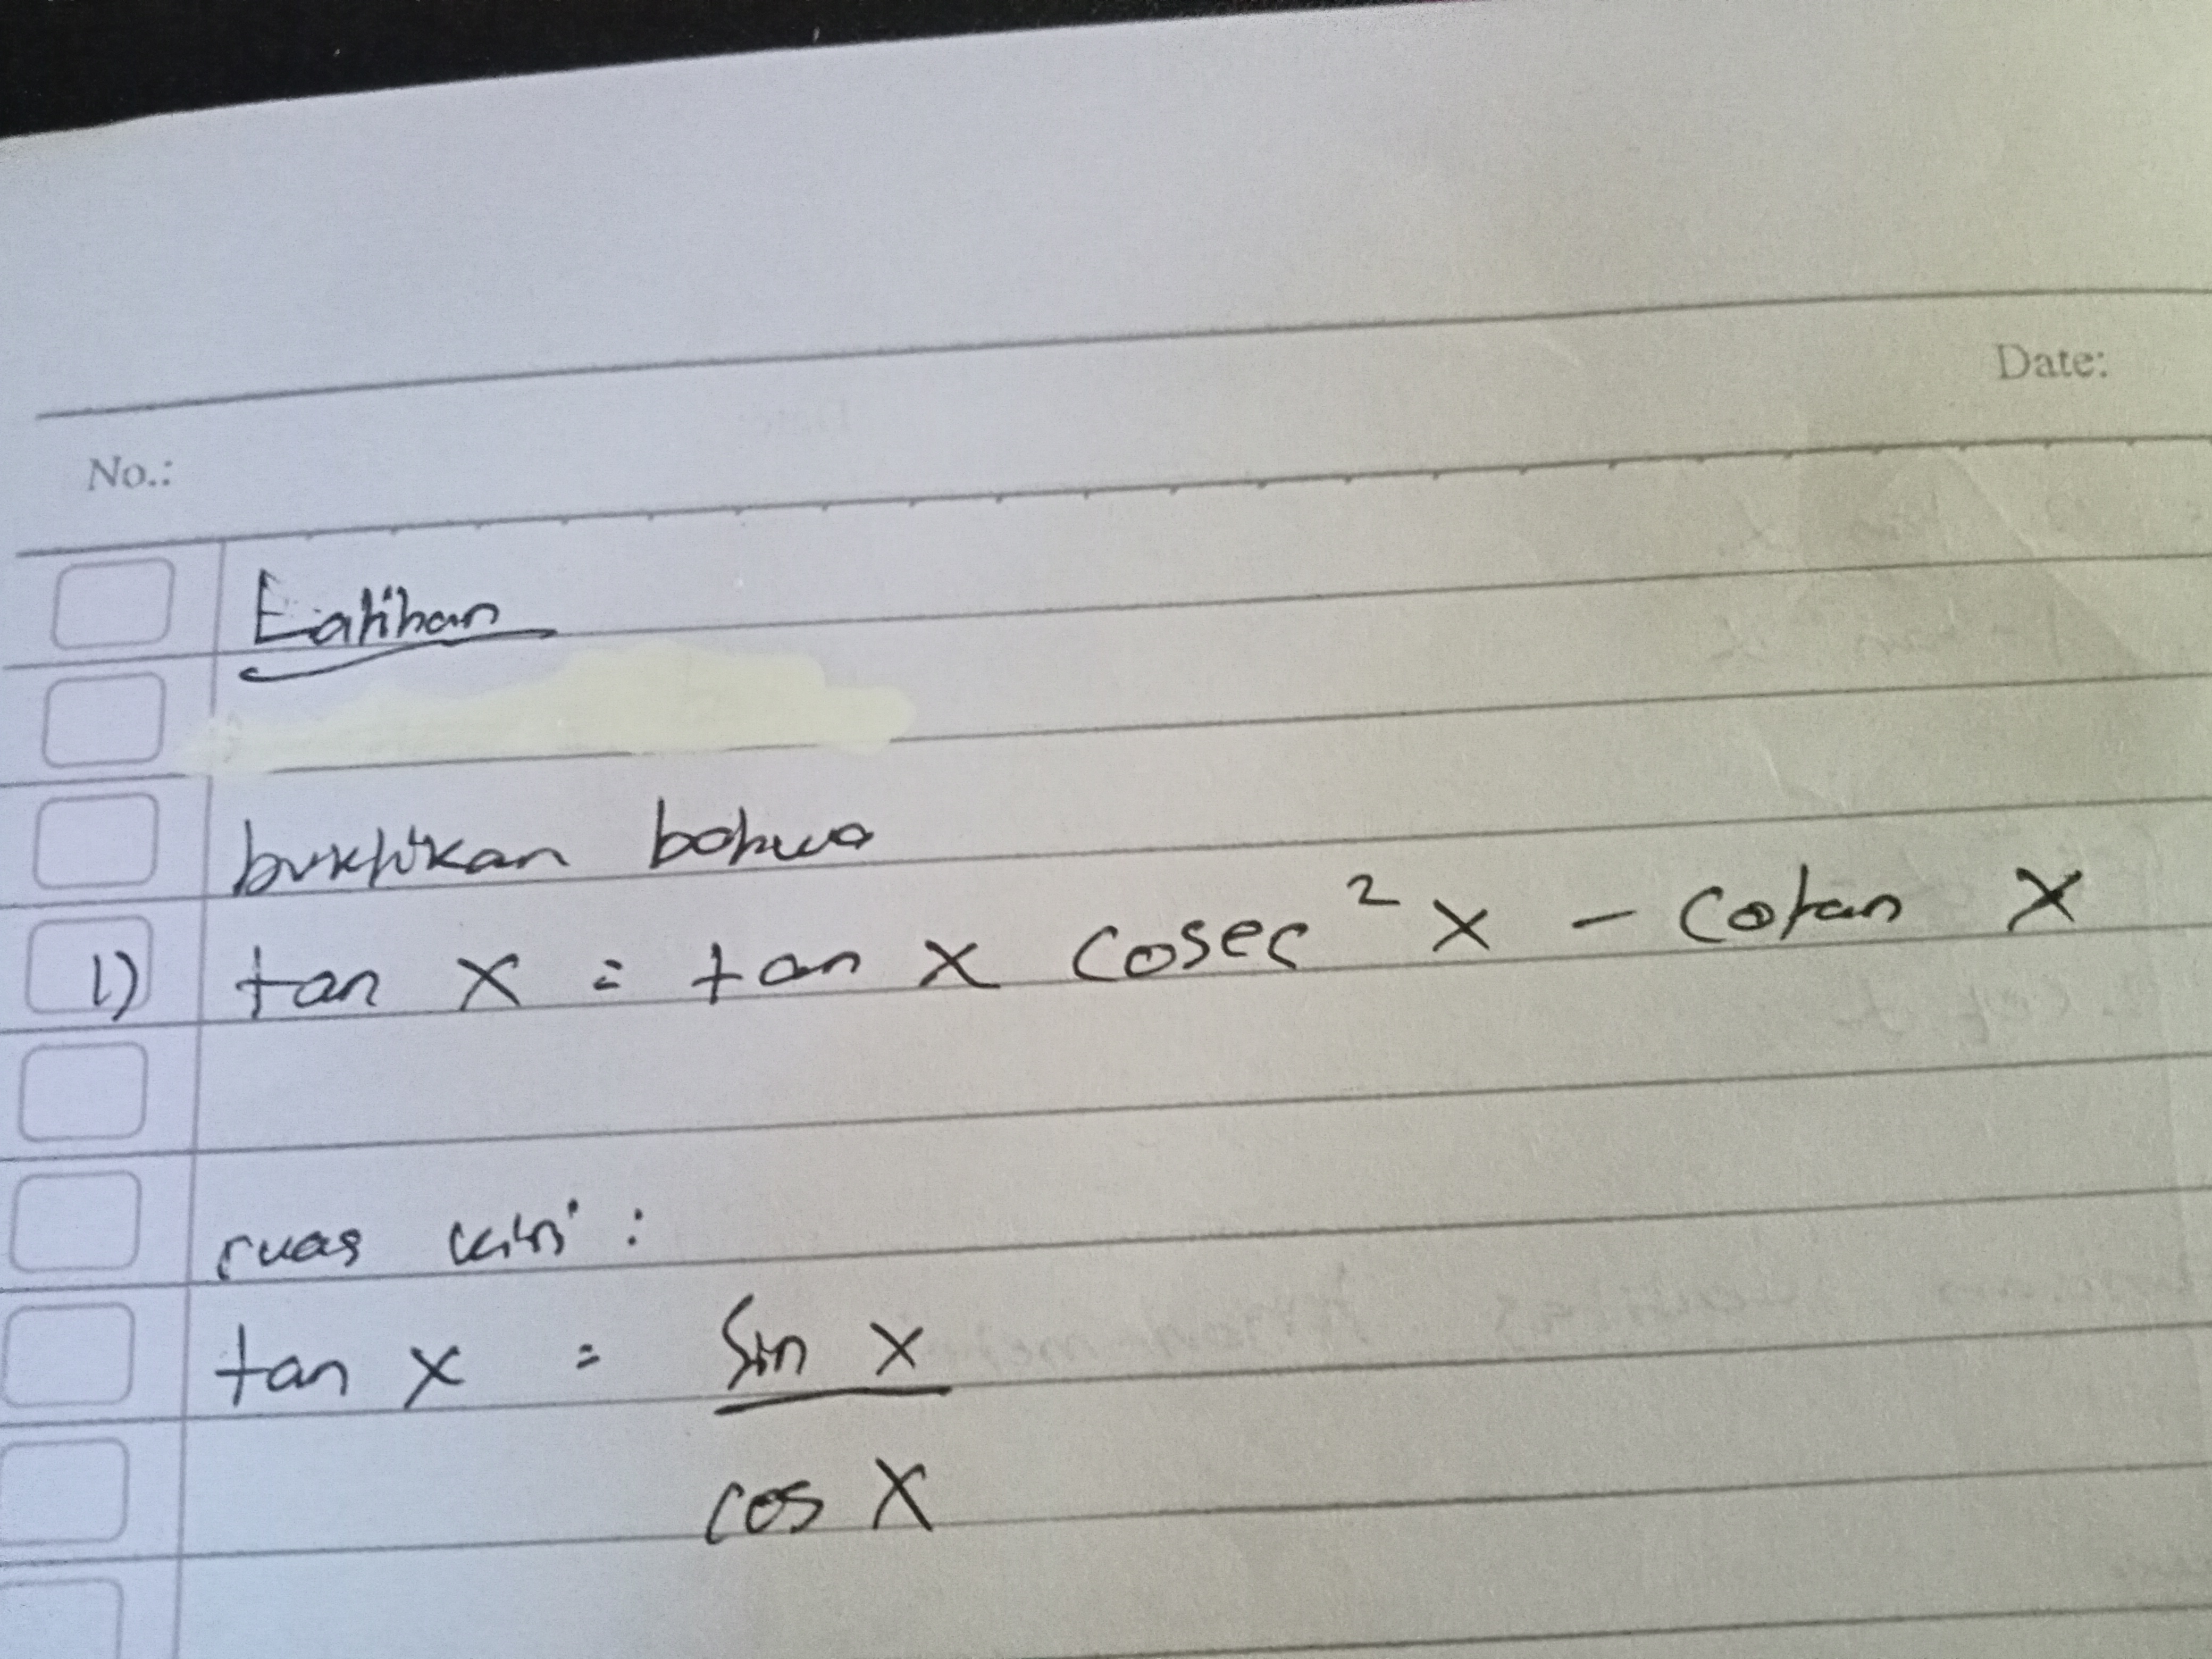 Date:
No.:
Latihan
buktikan bahwa
1) tan x = tan x cosec² x - cotan x
ruas kiri :
tan x = sin x
cos x